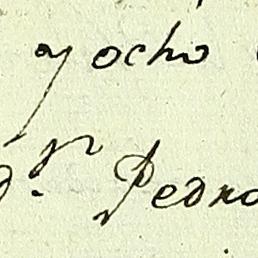 y ocho
d.n Pedro